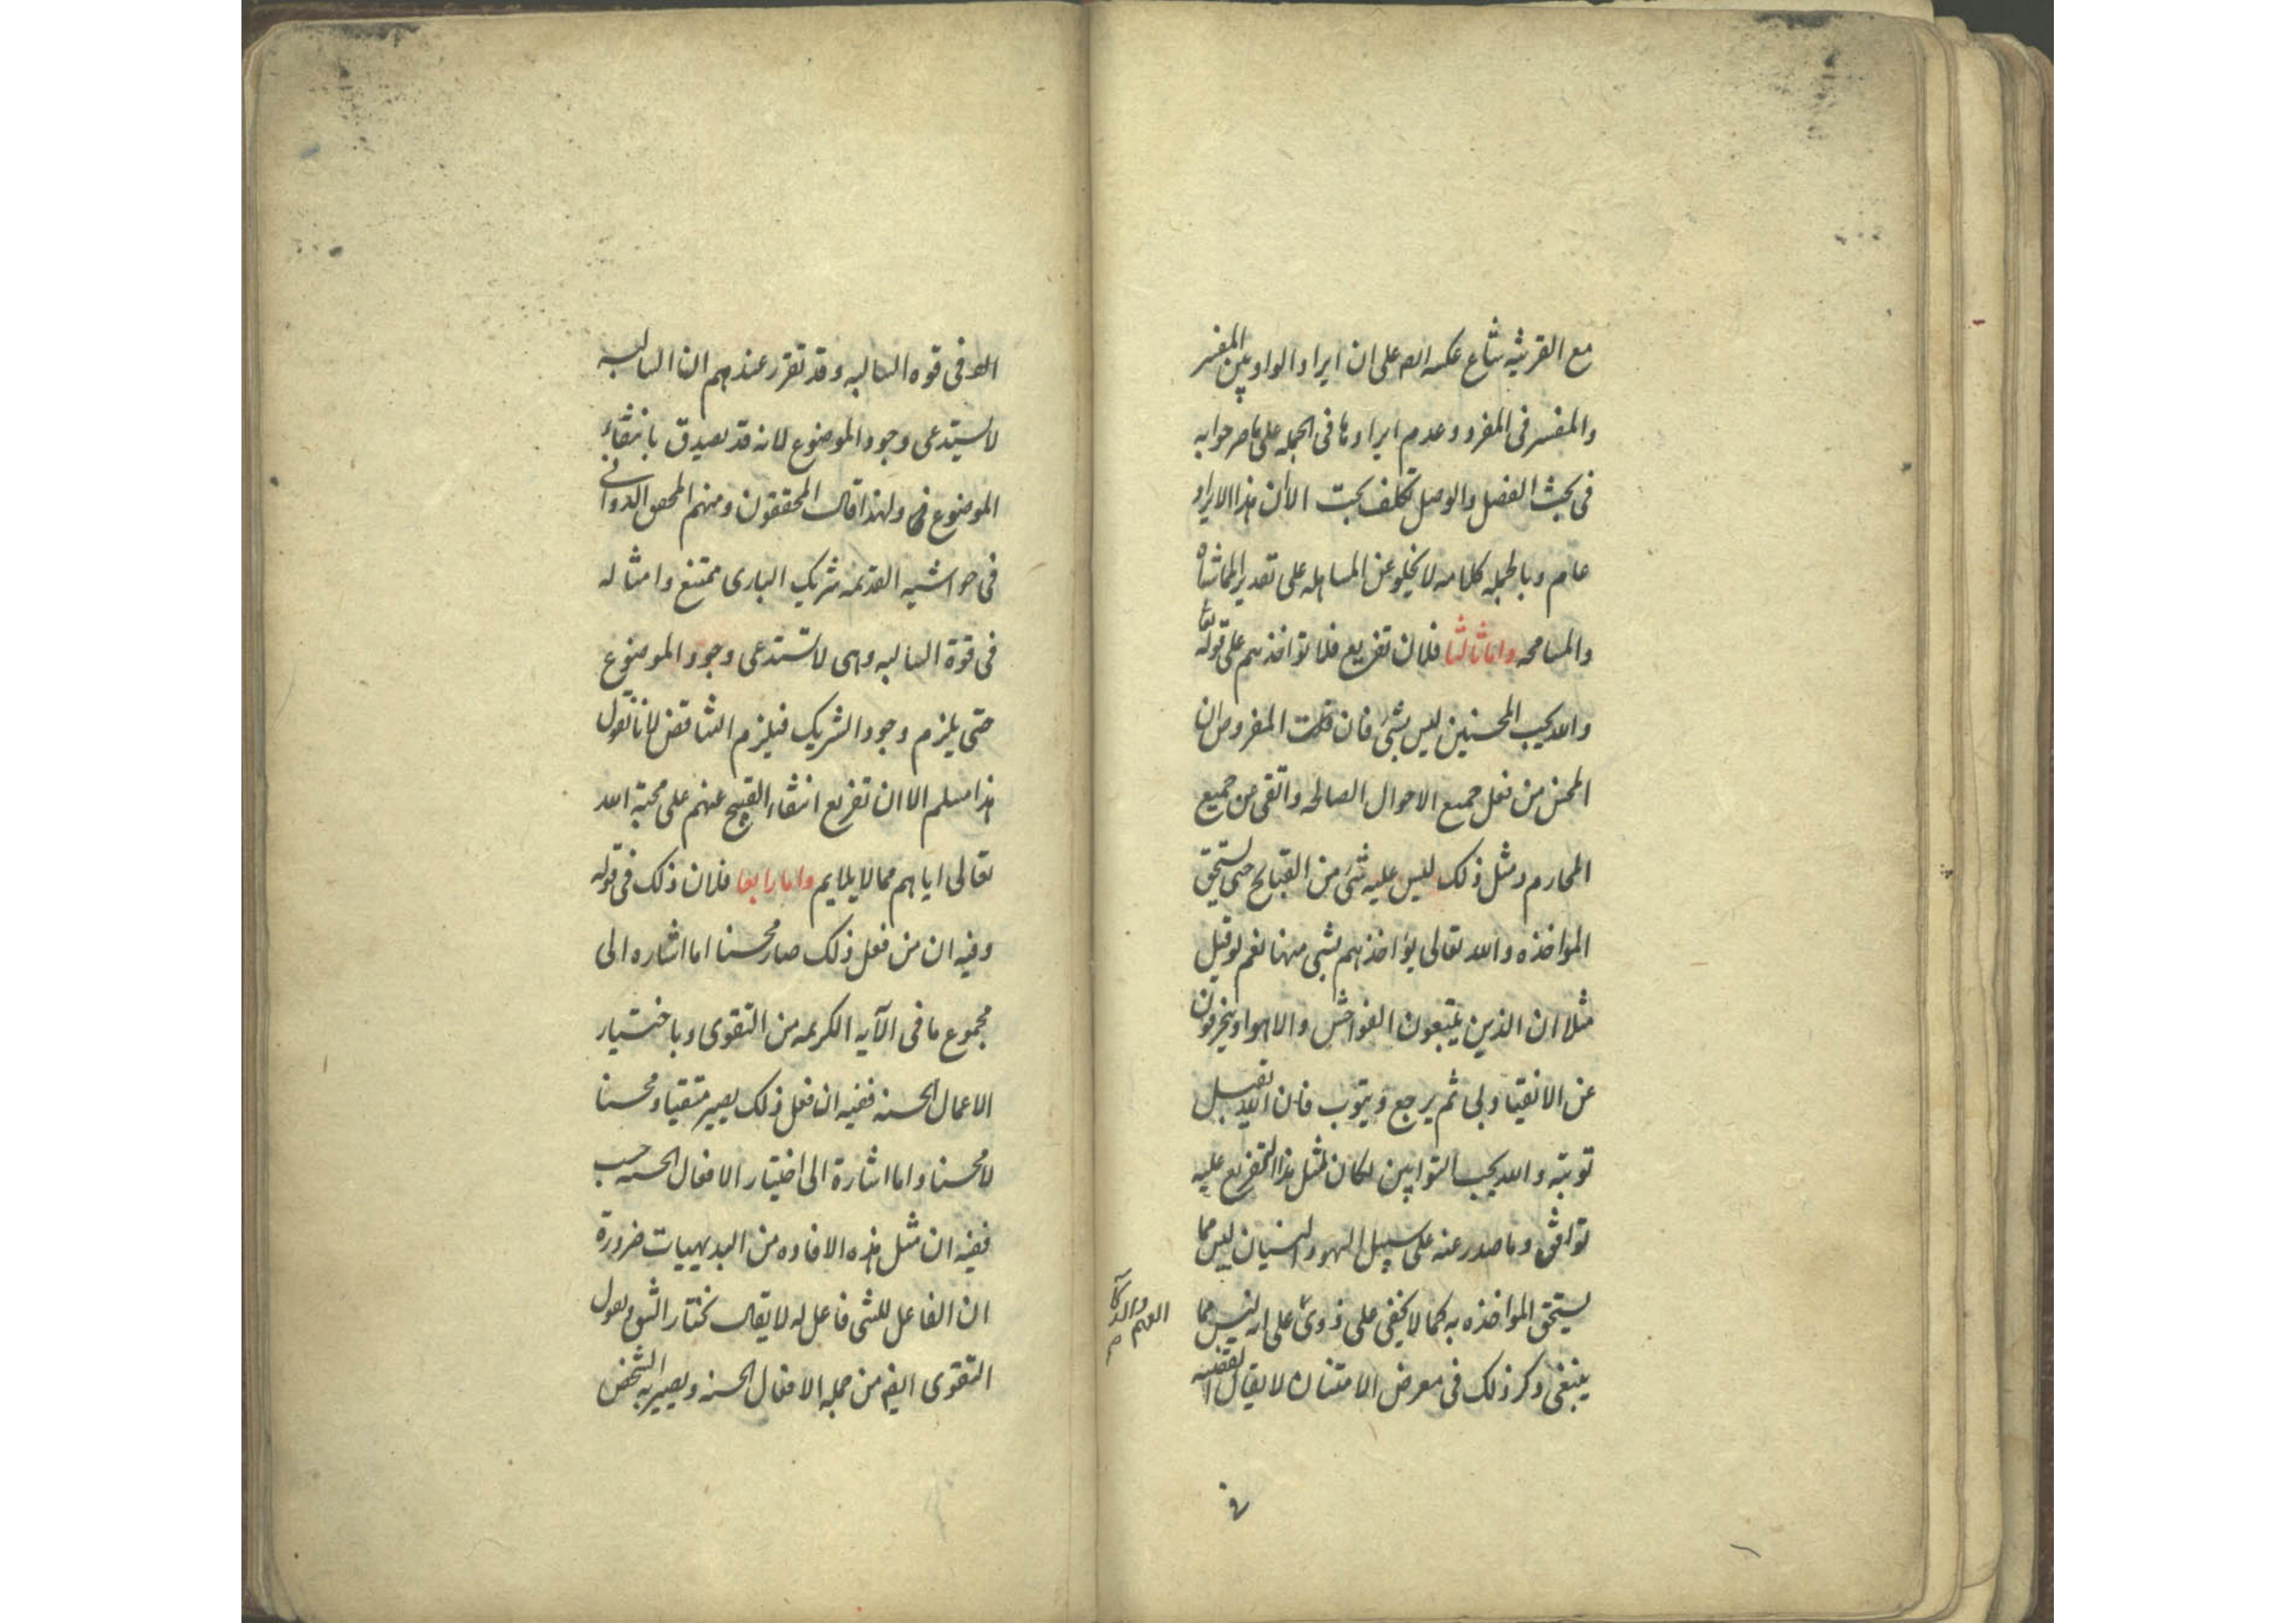 مع القرينه شاع عكسه الا على ان ايراد الواو بين المفسر
والمفسر فى المفرد وعدم ايرادها فى الجمله على ما صرحوا به
فى بحث الفصل والوصل تكلف بحت الا ان هذا الايراد
عام وبالجمله كلامه لا يخلو عن المساهله على تقدير المماشاه
والمسامحه واما ثالثا فلان تفريع فلا تؤاخذهم على قوله تعا
والله يحب المحسنين ليس بشئ فان قلت المفروض ان
المحسن من فعل جميع الاحوال الصالحه واتقى من جميع
المحارم ومثل ذلك ليس عليه شئ من القبائح حتى يستحق
المواخذه والله تعالى يؤاخذهم بشى منها نعم لو قيل
مثلا ان الذين يتبعون الفواحش والاهواء وينحرفون
عن الانقياد لى ثم يرجع ويتوب فان الله يقبل
توبته والله يحب التوابين لكان لمثل هذا التفريع عليه
توافق وما صدر عنه على سبيل السهو والنسيان ليس مما
يستحق المواخذه به كما لا يخفى على ذوى على انه ليس مما
ينبغى ذكر ذلك فى معرض الامتنان لا يقال القضيه
الفهم والذكا
فى قوه السالبه وقد تقرر عندهم ان السالبه
لا يستدعى وجود الموضوع لانه قد يصدق بانتفاء
الموضوع ولهذا قال المحققون ومنهم المحقق الدوانى
فى حواشيه القديمه شريك البارى ممتنع وامثاله
فى قوة السالبه وهى لا تستدعى وجود الموضوع
حتى يلزم وجود الشريك فيلزم التناقض لانا نقول
هذا مسلم الا ان تفريع انتفاء القبيح عنهم على محبة الله
تعالى اياهم مما لا يلايم واما رابعا فلان ذلك فى قوله
وفيه ان من فعل ذلك صار محسنا اما اشاره الى
مجموع ما فى الآيه الكريمه من التقوى وباختيار
الاعمال الحسنه ففيه ان فعل ذلك يصير متقيا ومحسنا
لا محسنا واما اشارة الى اختيار الافعال الحسنه حسب
ففيه ان مثل هذه الافاده من البديهيات ضرورة
ان الفاعل للشى فاعل له لا يقال نختار الشق ونقول
التقوى ايضا من جمله الافعال الحسنه ويصير به الشخص